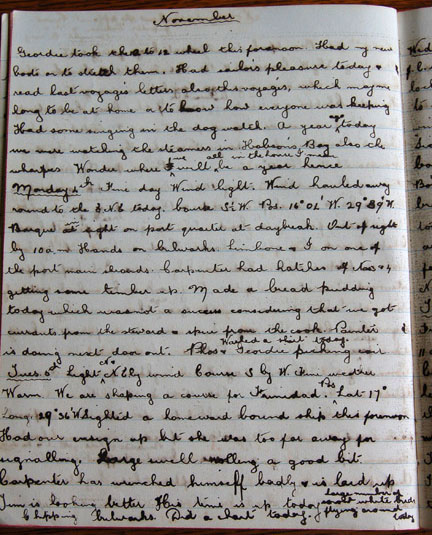 November
Geordie took the to 12 wheel this forenoon. Had my new
boots on to stretch them. Had sailor's pleasure today &
read last voyages letters also this voyages, which makes me
long to be at home & to know how everyone was keeping
Had some singing in the dog watch. A year ago today
we were watching the steamers in Hobsons Bay also the
wharfes. Wonder where we will all in the house I mean be a year hence
Monday 4th Fine day Wind light. Wind hauled away
round to the & N.E today. Course S½W. Pos. 16° 02' W. 29° 39' W
Barque at sight on port quarter at daybreak. Out of sight
by 10am Hands on bulwarks & I on one of
the port main shrouds. Carpenter had hatches off
getting some timber up. Made a bread pudding
today which was not a success considering that we got
currants from the steward & spice from the cook. Painter
is doing next door out. Phos & Geordie picking oair
Washed a shirt today.
Tues 5th light N'ly wind Course S by W. Fine weather
Warm. We are shaping a course for Trinidad. Pos Lat 17°
Long. 29° 36' W Sighted a homeward bound ship this forenoon
Had our ensign up but she was too far away for
signalling. Large swell rolling a good bit.
Carpenter has wrenched himself badly & is laid up
Jim is looking better His time is up today
Chipping bulwarks. Did a chart today.
Large number of
white birds
flying around
today